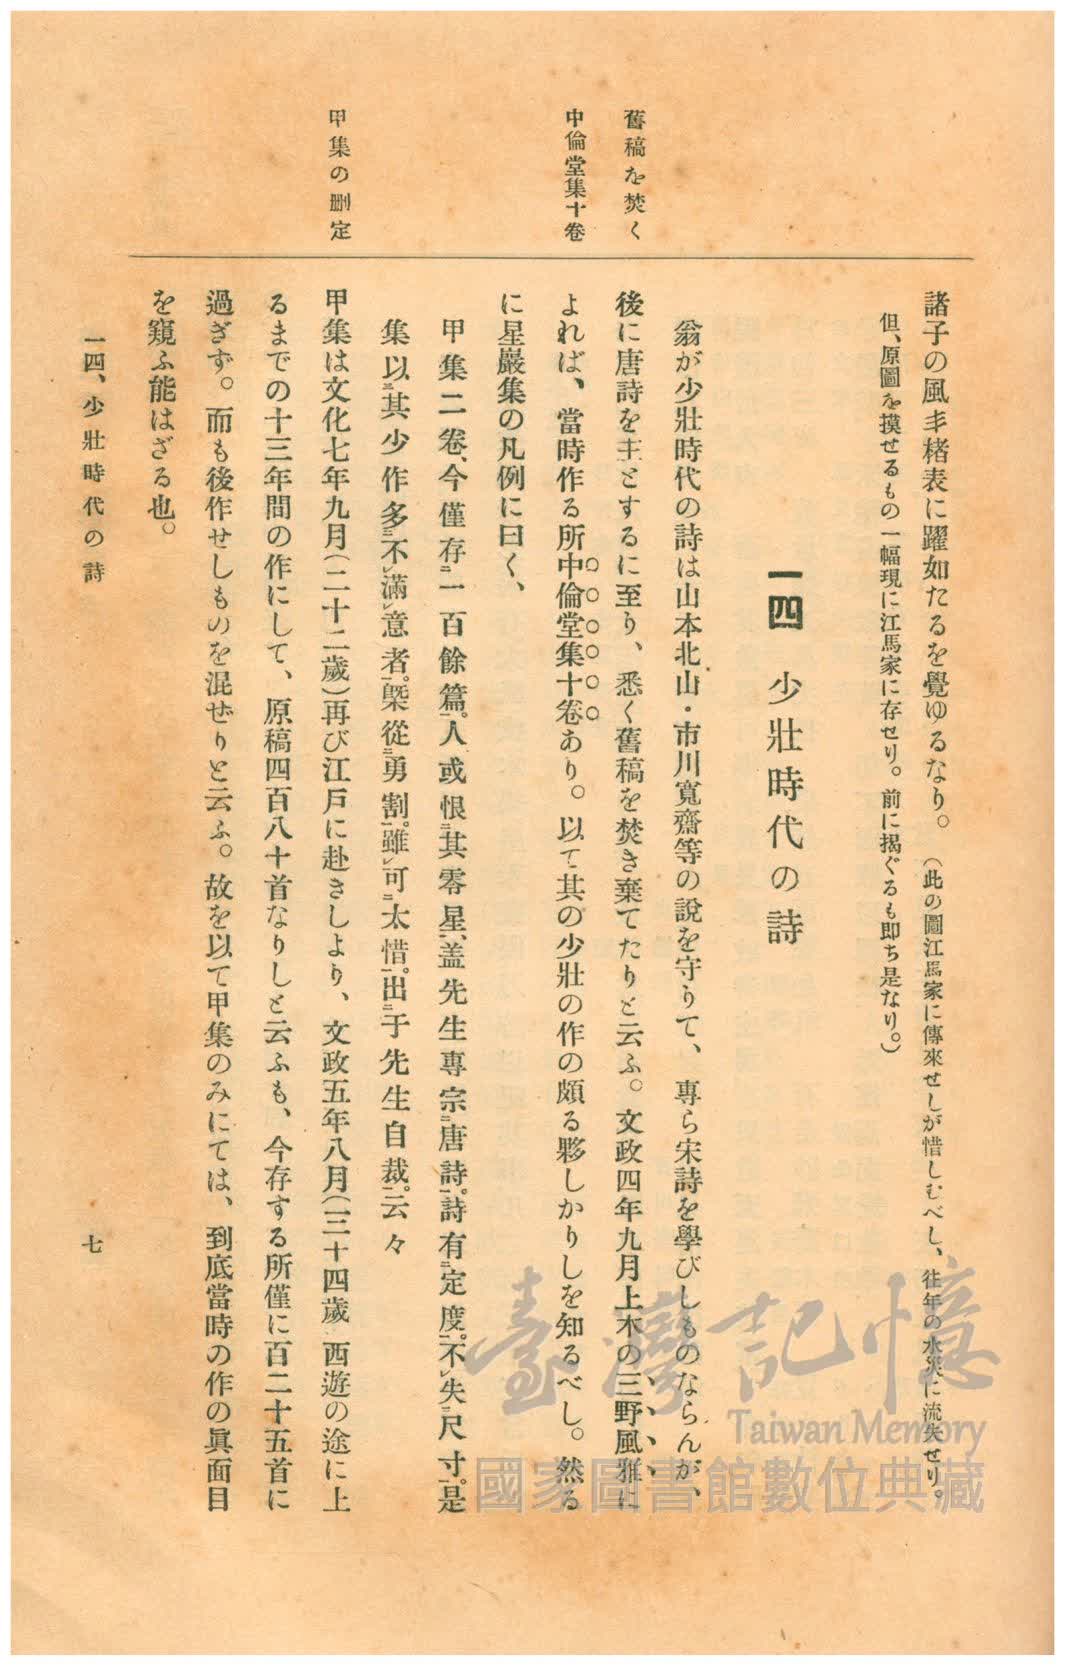 舊稿を焚く
中倫堂集十卷
甲集の刪定
諸子の風丰楮表に躍如たるを覺ゆるなり。（此の圖江馬家に傳來せしが惜しむべし、往年の水災に流失せり。
但、原圖を摸せるもの一幅現に江馬家に存せり。前に揭ぐるも即ち是なり。）
一四　少壯時代の詩
翁が少壯時代の詩は山本北山・市川寬齋等の說を守りて、專ら宋詩を學びしものならんが、
後に唐詩を主とするに至り、悉く舊稿を焚き棄てたりと云ふ。文政四年九月上木の三野風雅に
よれば、當時作る所中倫堂集十卷あり。以て其の少壯の作の頗る夥しかりしを知るべし。然る
に星巖集の凡例に曰く、
甲集二卷、今僅存二一百餘篇一。人或恨二其零星一、盖先生專宗二唐詩一。詩有二定度一。不レ失二尺寸一。是
集以二其少作多一レ不レ滿レ意者一。槩從二勇割一。雖レ可二太惜一。出二于先生自裁一。云々
甲集は文化七年九月（二十二歲）再び江戶に赴きしより、文政五年八月（三十四歲 西遊の途に上
るまでの十三年間の作にして、原稿四百八十首なりしと云ふも、今存する所僅に百二十五首に
過ぎず。而も後作せしものを混ぜりと云ふ。故を以て甲集のみにては、到底當時の作の眞面目
を窺ふ能はざる也。
一四、少壯時代の詩
七
臺灣記憶
Taiwan Memory
國家圖書館數位典藏